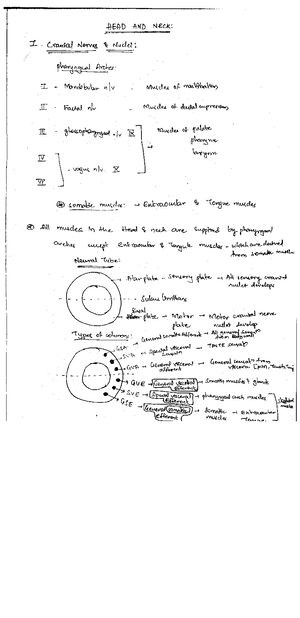 HEAD AND NECK:
I - Cranial Nerves & Nuclei:
Pharyngeal Arches:
I - Mandibular n/v - Muscles of mastication
II - Facial n/v - Muscles of facial expression
III - glossopharyngeal n/v IX - Muscles of palate
pharynx
larynx
IV
- vagus n/v X
VI
Somatic muscles: → Extraocular & Tongue muscles
All muscles in the Head & neck are supplied by pharyngeal
arches except Extraocular & Tongue muscles - which are derived
from somatic muscle
Neural Tube:
Alar plate - Sensory plate - All sensory cranial
nuclei develops
Sulcus limitans
Basal plate - Motor - Motor cranial nerve
plate nuclei develop
Types of columns:
GSA General somatic afferent
SVA - Special visceral - Taste
GVA - General visceral afferent - General sensation from
viscera
GVE - General visceral efferent - Smooth muscles & glands
SVE - Special visceral efferent → pharyngeal arch muscles
GSE - General somatic efferent - Somatic muscle - Extraocular